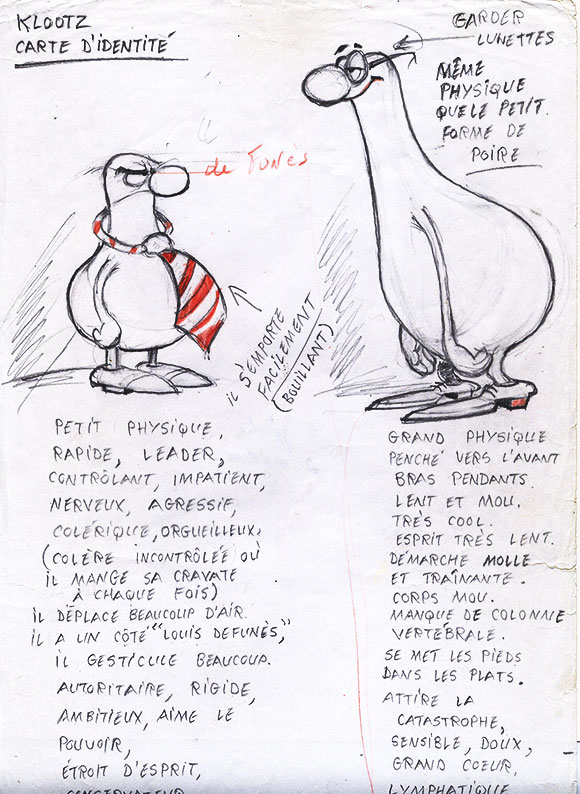 KLOOTZ
CARTE D'IDENTITÉ
GARDER
LUNETTES
MÊME
PHYSIQUE
QUE LE PETIT.
FORME DE
POIRE
de Funès
IL S'EMPORTE
FACILEMENT
(BOUILLANT)
PETIT PHYSIQUE,
RAPIDE, LEADER,
CONTRÔLANT, IMPATIENT,
NERVEUX, AGRESSIF,
COLÉRIQUE, ORGUEILLEUX.
(COLÈRE INCONTRÔLÉE OÙ
IL MANGE SA CRAVATE
À CHAQUE FOIS)
IL DÉPLACE BEAUCOUP D'AIR.
IL A UN CÔTÉ "LOUIS DEFUNÈS,"
IL GESTICULE BEAUCOUP.
AUTORITAIRE, RIGIDE,
AMBITIEUX, AIME LE
POUVOIR,
ÉTROIT D'ESPRIT,
CONSERVATEUR
GRAND PHYSIQUE
PENCHÉ VERS L'AVANT
BRAS PENDANTS.
LENT ET MOU.
TRÈS COOL.
ESPRIT TRÈS LENT.
DÉMARCHE MOLLE
ET TRAÎNANTE.
CORPS MOU.
MANQUE DE COLONNE
VERTÉBRALE.
SE MET LES PIEDS
DANS LES PLATS.
ATTIRE LA
CATASTROPHE,
SENSIBLE, DOUX,
GRAND COEUR,
LYMPHATIQUE